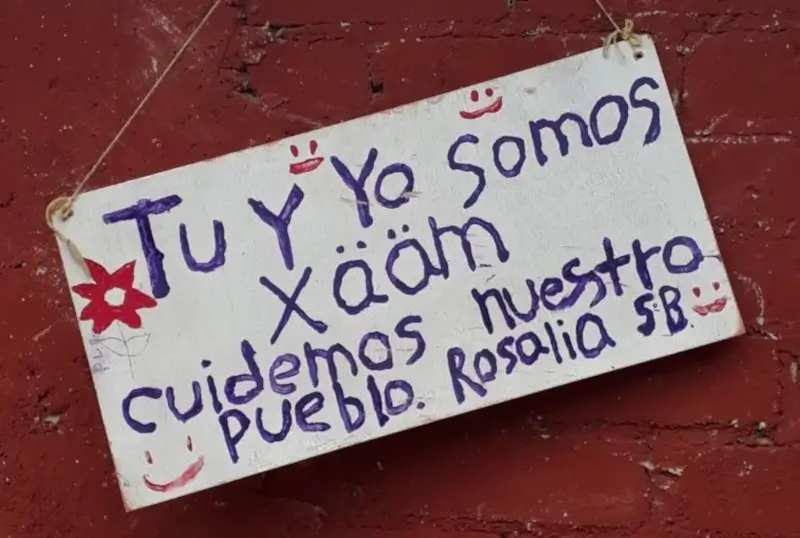 Tu Y Yo somos
xääm
cuidemos nuestro
pueblo. Rosalia S.B.